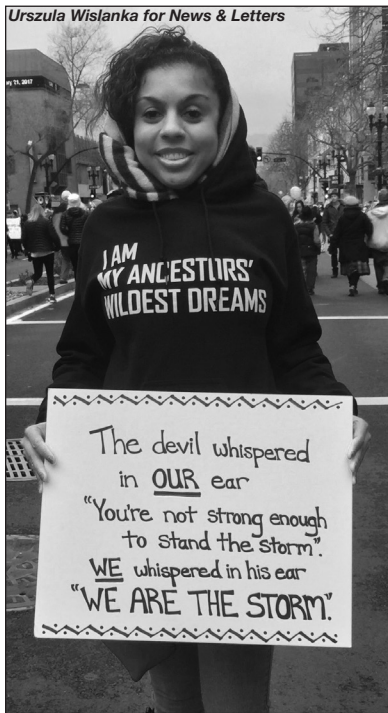 Urszula Wislanka for News & Letters
ry 21, 2017
I AM
MY ANCESTORS'
WILDEST DREAMS
The devil whispered
in OUR ear
"You're not strong enough
to stand the storm".
WE whispered in his ear
"WE ARE THE STORM".